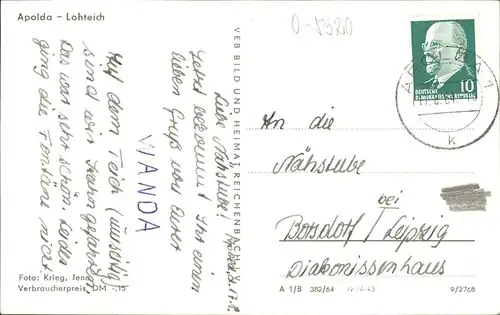 Apolda – Lohteich
O-5320
Apolda, d. 17.8.
Liebe Nähstube!
Jetzt bekommt Ihr einen
lieben Gruß von Eurer
WANDA
Auf dem Teich (umseitig)
sind wir Kahn gefahren,
Das war sehr schön. Leider
ging die Fontäne nicht.
Foto: Krieg, Jena
Verbraucherpreis DM -,15
VEB BILD UND HEIMAT REICHENBACH I. V.
10
DEUTSCHE
DEMOKRATISCHE REPUBLIK
k
An die
Nähstube
bei
Borsdorf / Leipzig
Diakonissenhaus
A 1/B 382/64 IV-14-45 9/2768